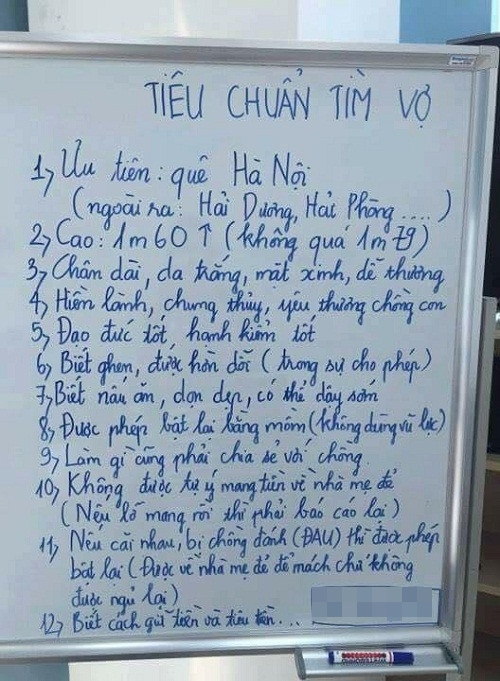 TIÊU CHUẨN TÌM VỢ
1, Ưu tiên: quê Hà Nội
(ngoài ra: Hải Dương, Hải Phòng ....)
2, Cao: 1m60 ↑ (không quá 1m79)
3, Chân dài, da trắng, mặt xinh, dễ thương
4, Hiền lành, chung thủy, yêu thương chồng con
5, Đạo đức tốt, hạnh kiểm tốt
6, Biết ghen, được hờn dỗi (trong sự cho phép)
7, Biết nấu ăn, dọn dẹp, có thể dậy sớm
8, Được phép bật lại bằng mồm (không dùng vũ lực)
9, Làm gì cũng phải chia sẻ với chồng.
10, Không được tự ý mang tiền về nhà mẹ đẻ
(Nếu lỡ mang rồi thì phải báo cáo lại)
11, Nếu cãi nhau, bị chồng đánh (ĐAU) thì được phép
bật lại (Được về nhà mẹ đẻ để mách chứ không
được ngủ lại)
12, Biết cách giữ tiền và tiêu tiền...